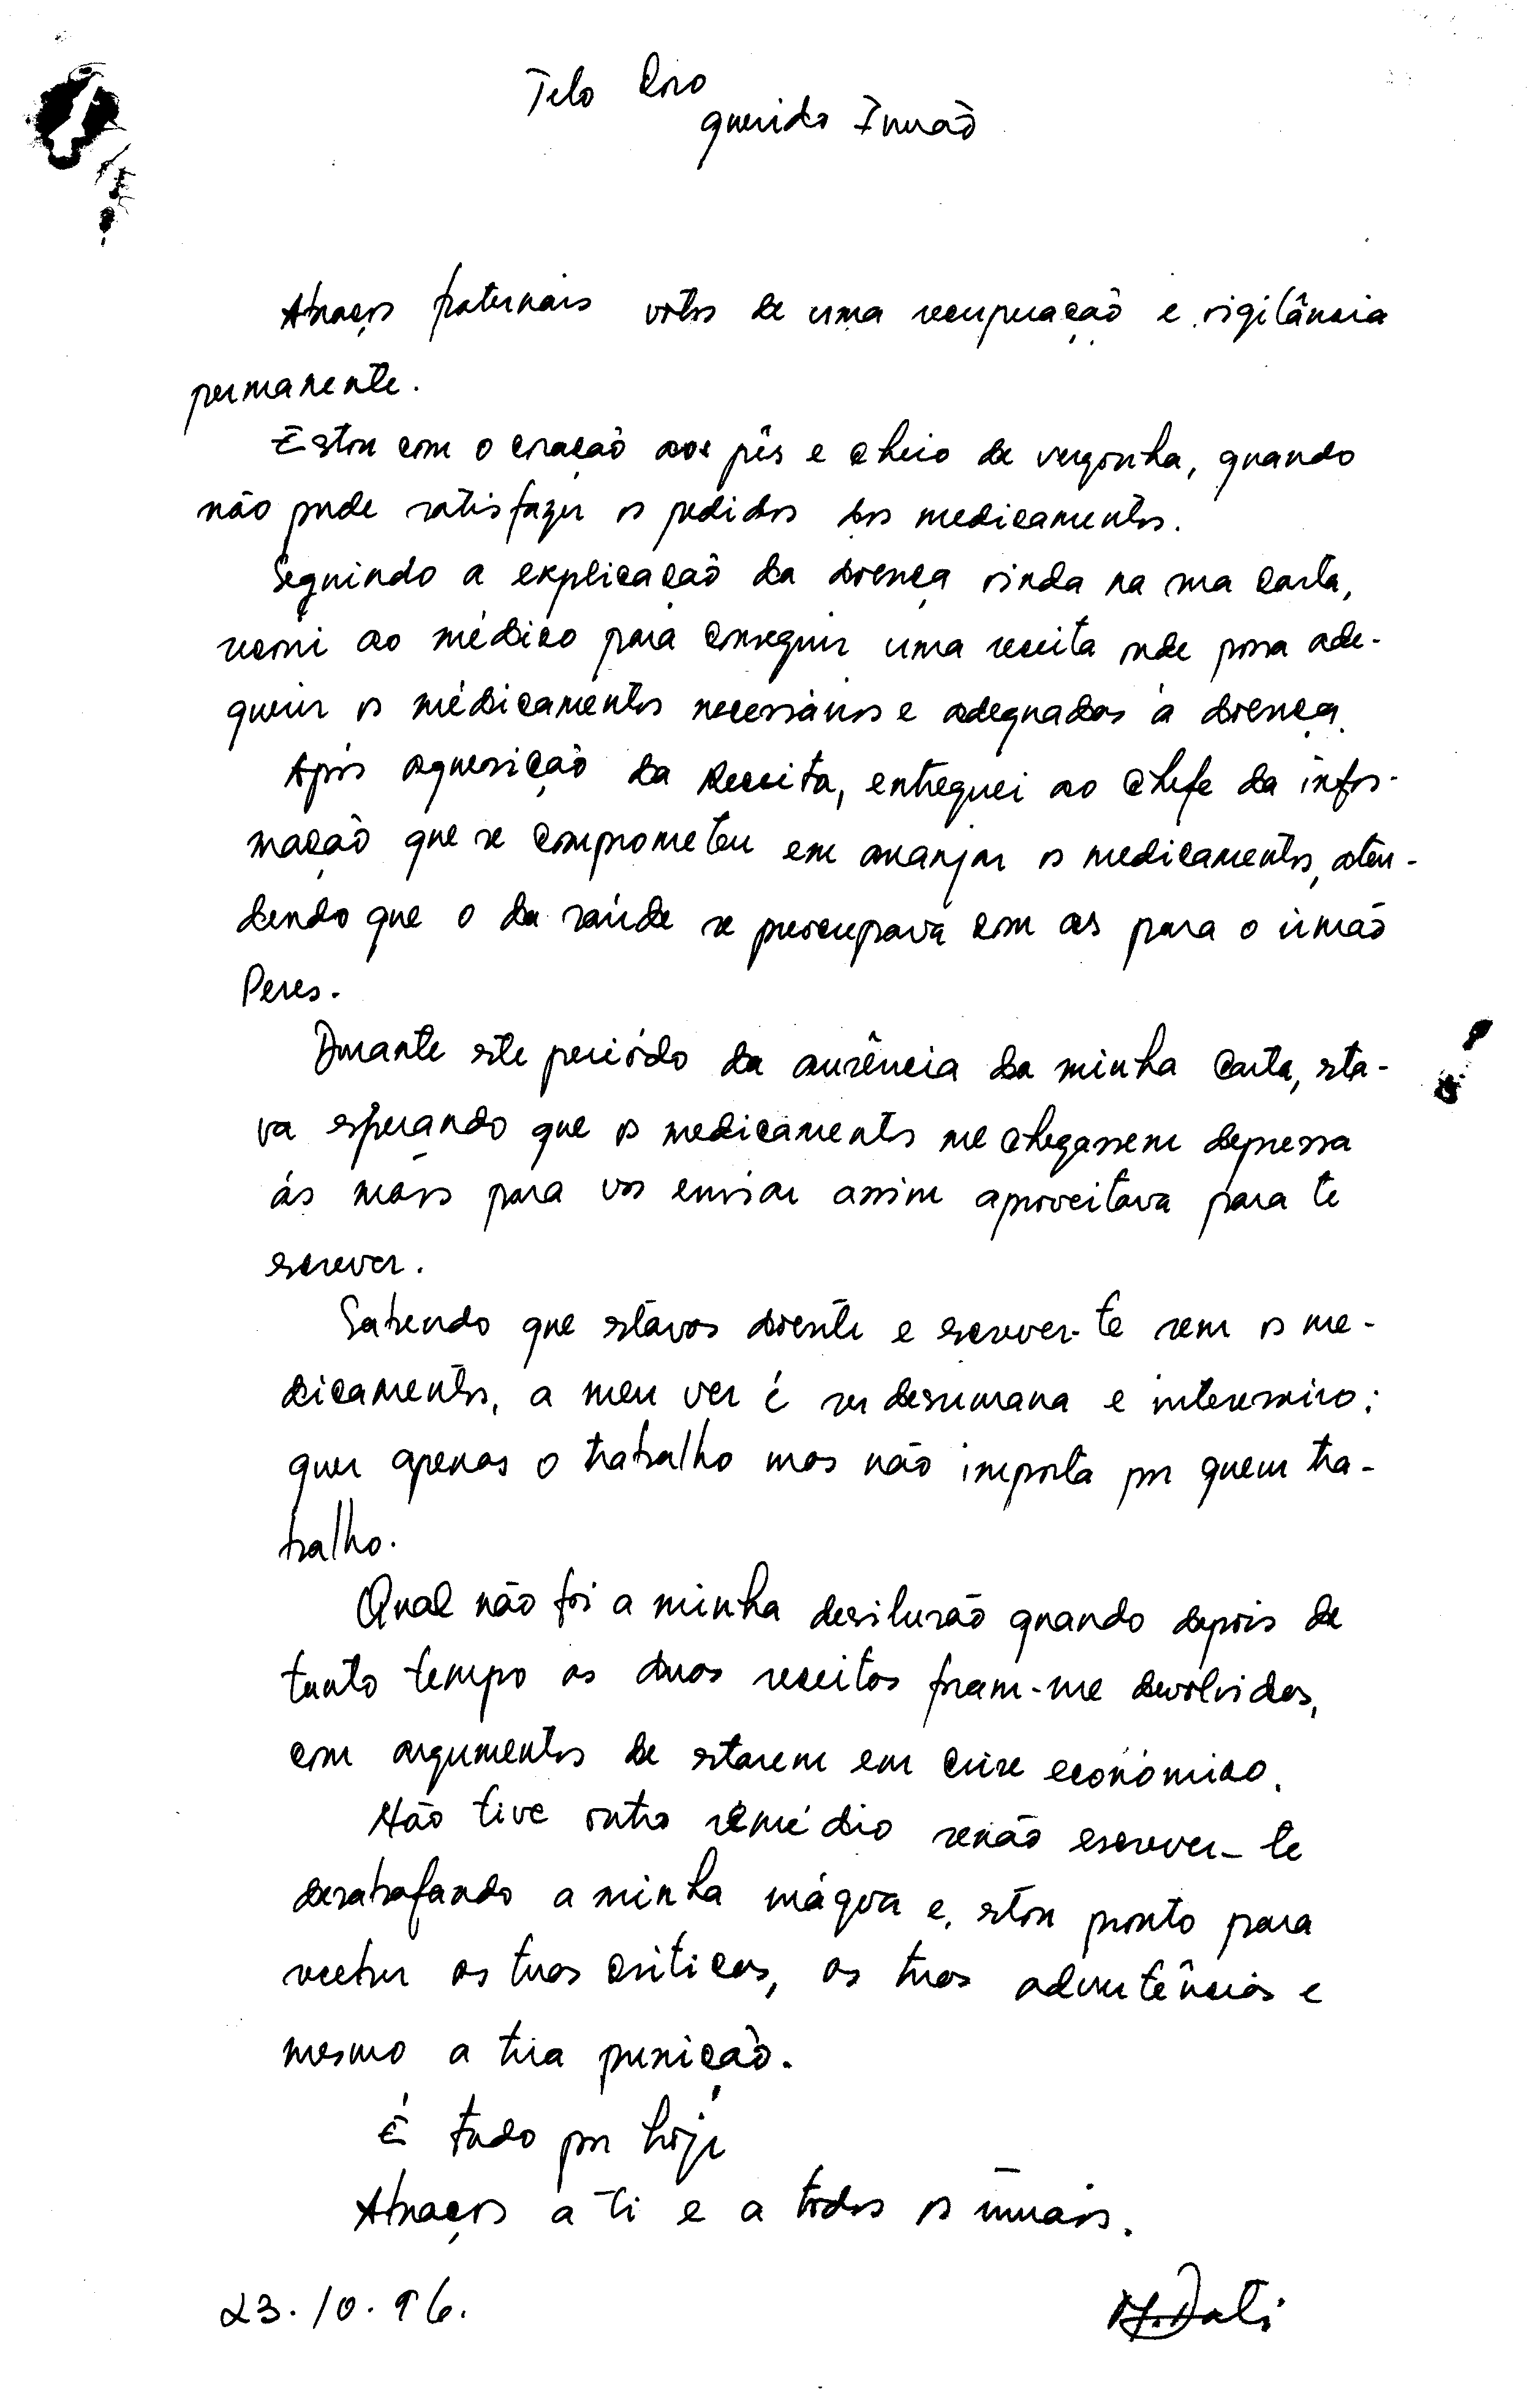 Telo Coro
querido Irmão
Abraços fraternais votos de uma recuperação e vigilância
permanente.
Estou com o coração aos pês e cheio de vergonha, quando
não pude satisfazer os pedidos dos medicamentos.
Seguindo a explicação da doença vinda na sua carta,
recorri ao médico para conseguir uma receita onde possa ade-
querir os médicamentos necessários e adequadas à doença.
Após aquesição da Receita, entreguei ao chefe da infor-
mação que se comprometeu em arranjar os medicamentos, aten-
dendo que o da saúde se preocupava com as para o irmão
Peres.
Durante este periódo da ausência da minha carta, esta-
va esperando que os medicamentos me chegassem depressa
ás mãos para vos enviar assim aproveitava para te
escrever.
Sabendo que estavas doente e escrever-te sem os me-
dicamentos, a meu ver é ser desumana e interesseiro;
quer apenas o trabalho mas não importa por quem tra-
balho.
Qual não foi a minha desilusão quando depois de
tanto tempo as duas receitas foram-me devolvidas,
com argumentos de estarem em crise económico.
Não tive outro remédio senão escrever-te
desabafando a minha mágoa e, estou pronto para
receber as tuas críticas, as tuas advertências e
mesmo a tua punição.
É tudo por hoje
Abraços a ti e a todos os irmãos.
23.10.96.